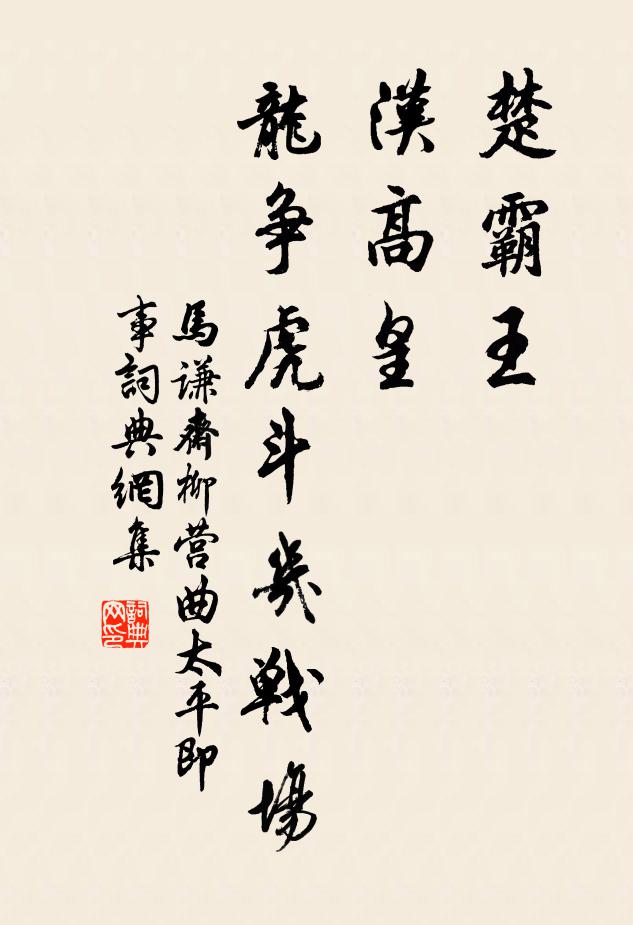 楚霸王
漢高皇
龍争虎斗幾戰場
馬谦齋柳营曲太平即
事詞典網集
詞典网印